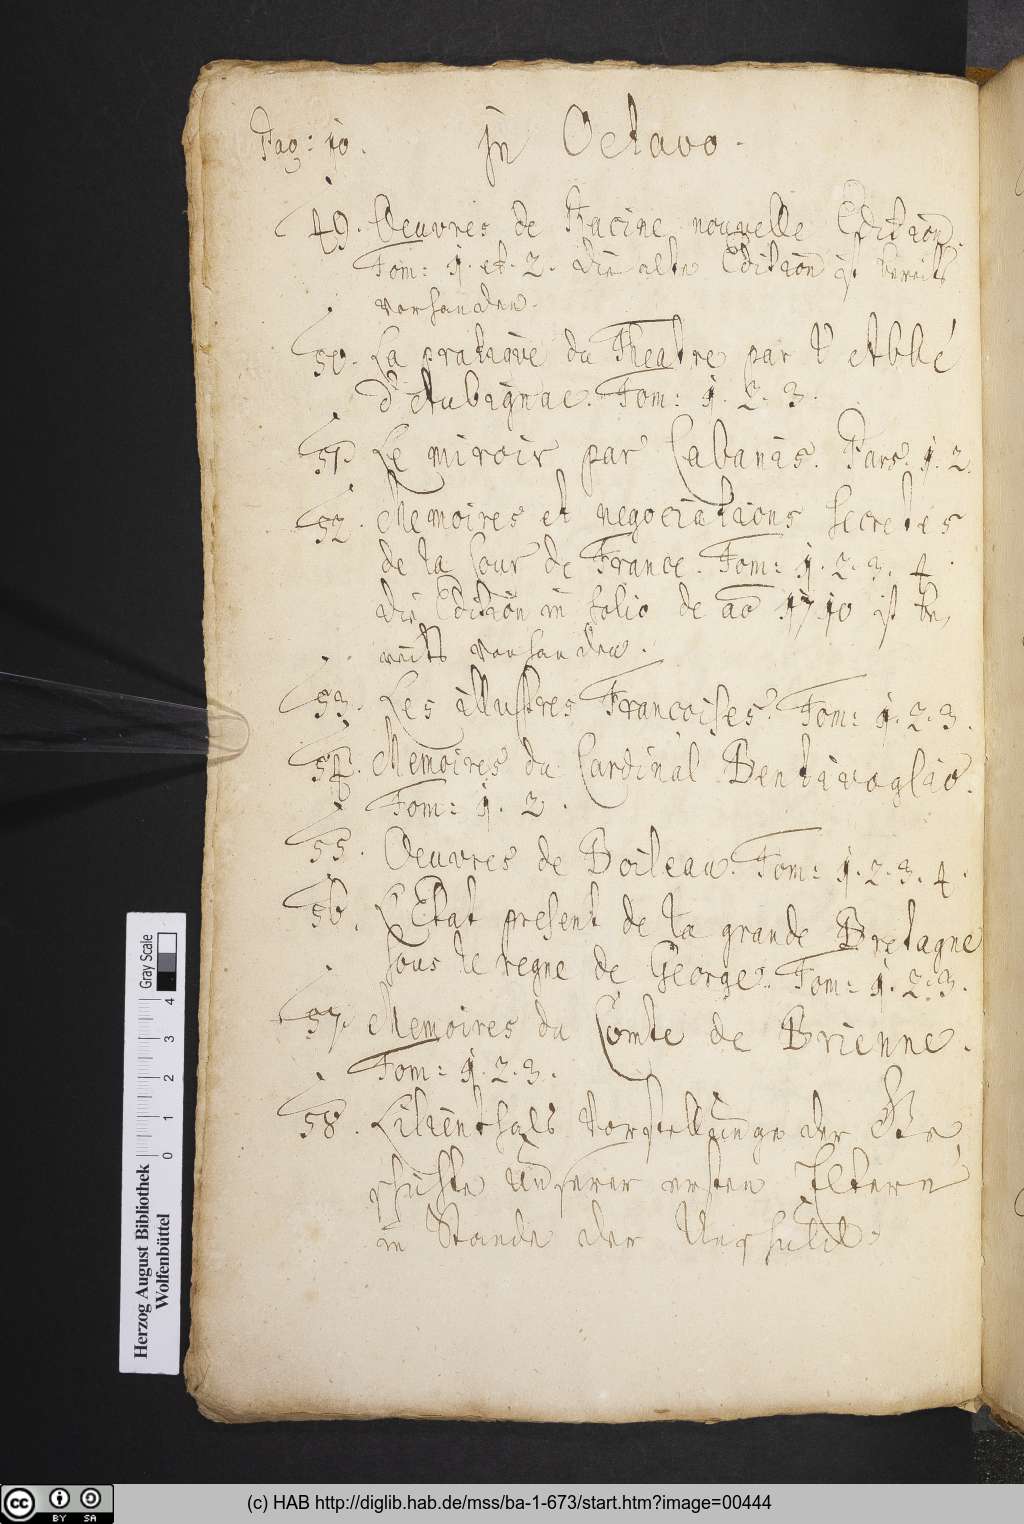 Pag: 10. in Octavo.
49. Oeuvres de Racine nouvelle Edition.
Tom: 1. et. 2. die alte Edition ist bereits
vorhanden.
50. La pratique du Theatre par l'Abbé
d'Aubignac. Tom: 1. 2. 3.
51. Le miroir par Cabanis. Pars. 1. 2.
52. Memoires et negociations secretes
de la Cour de France. Tom: 1. 2. 3. 4.
die Edition in folio de ao 1710 ist be,
reits vorhanden.
53. Les illustres Francoises. Tom: 1. 2. 3.
54. Memoires du Cardinal Bentivoglio.
Tom: 1. 2.
55. Oeuvres de Boileau. Tom: 1. 2. 3. 4.
56. L'Etat present de la grande Bretagne
sous le regne de George. Tom: 1. 2. 3.
57. Memoires du Comte de Brienne.
Tom: 1. 2. 3.
58. Lilienthals Vorstellunge der Ge
schichte Unserer ersten Eltern
in Stande der Unschuld.
Gray Scale
0 1 2 3 4
Herzog August Bibliothek
Wolfenbüttel
cc BY SA
(c) HAB http://diglib.hab.de/mss/ba-1-673/start.htm?image=00444